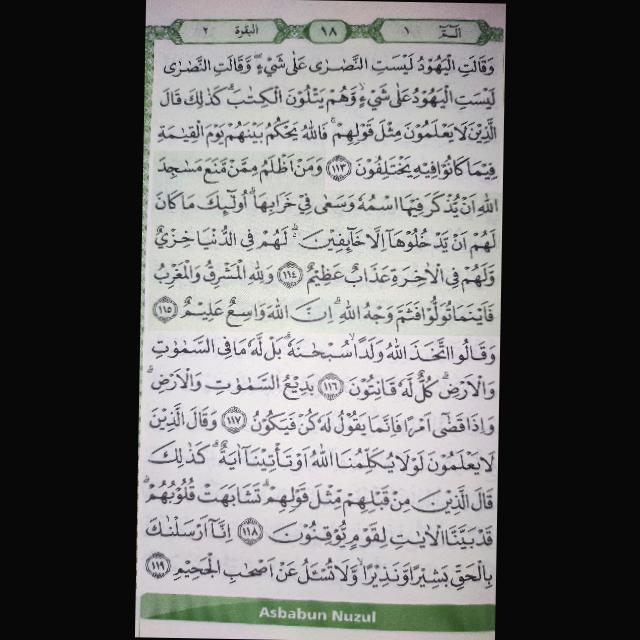 الۤمّۤ ١
١٨
البقرة ٢
وَقَالَتِ الْيَهُوْدُ لَيْسَتِ النَّصٰرٰى عَلٰى شَيْءٍۖ وَّقَالَتِ النَّصٰرٰى
لَيْسَتِ الْيَهُوْدُ عَلٰى شَيْءٍۙ وَّهُمْ يَتْلُوْنَ الْكِتٰبَۗ كَذٰلِكَ قَالَ
الَّذِيْنَ لَا يَعْلَمُوْنَ مِثْلَ قَوْلِهِمْۚ فَاللّٰهُ يَحْكُمُ بَيْنَهُمْ يَوْمَ الْقِيٰمَةِ
فِيْمَا كَانُوْا فِيْهِ يَخْتَلِفُوْنَ ١١٣ وَمَنْ اَظْلَمُ مِمَّنْ مَّنَعَ مَسٰجِدَ
اللّٰهِ اَنْ يُّذْكَرَ فِيْهَا اسْمُهٗ وَسَعٰى فِيْ خَرَابِهَاۗ اُولٰۤىِٕكَ مَا كَانَ
لَهُمْ اَنْ يَّدْخُلُوْهَآ اِلَّا خَاۤىِٕفِيْنَۗ لَهُمْ فِى الدُّنْيَا خِزْيٌ
وَّلَهُمْ فِى الْاٰخِرَةِ عَذَابٌ عَظِيْمٌ ١١٤ وَلِلّٰهِ الْمَشْرِقُ وَالْمَغْرِبُ
فَاَيْنَمَا تُوَلُّوْا فَثَمَّ وَجْهُ اللّٰهِۗ اِنَّ اللّٰهَ وَاسِعٌ عَلِيْمٌ ١١٥
وَقَالُوا اتَّخَذَ اللّٰهُ وَلَدًاۙ سُبْحٰنَهٗۗ بَلْ لَّهٗ مَا فِى السَّمٰوٰتِ
وَالْاَرْضِۗ كُلٌّ لَّهٗ قَانِتُوْنَ ١١٦ بَدِيْعُ السَّمٰوٰتِ وَالْاَرْضِۗ
وَاِذَا قَضٰٓى اَمْرًا فَاِنَّمَا يَقُوْلُ لَهٗ كُنْ فَيَكُوْنُ ١١٧ وَقَالَ الَّذِيْنَ
لَا يَعْلَمُوْنَ لَوْلَا يُكَلِّمُنَا اللّٰهُ اَوْ تَأْتِيْنَآ اٰيَةٌۗ كَذٰلِكَ
قَالَ الَّذِيْنَ مِنْ قَبْلِهِمْ مِّثْلَ قَوْلِهِمْۘ تَشَابَهَتْ قُلُوْبُهُمْۗ
قَدْ بَيَّنَّا الْاٰيٰتِ لِقَوْمٍ يُّوْقِنُوْنَ ١١٨ اِنَّآ اَرْسَلْنٰكَ
بِالْحَقِّ بَشِيْرًا وَّنَذِيْرًاۙ وَّلَا تُسْـَٔلُ عَنْ اَصْحٰبِ الْجَحِيْمِ ١١٩
Asbabun Nuzul